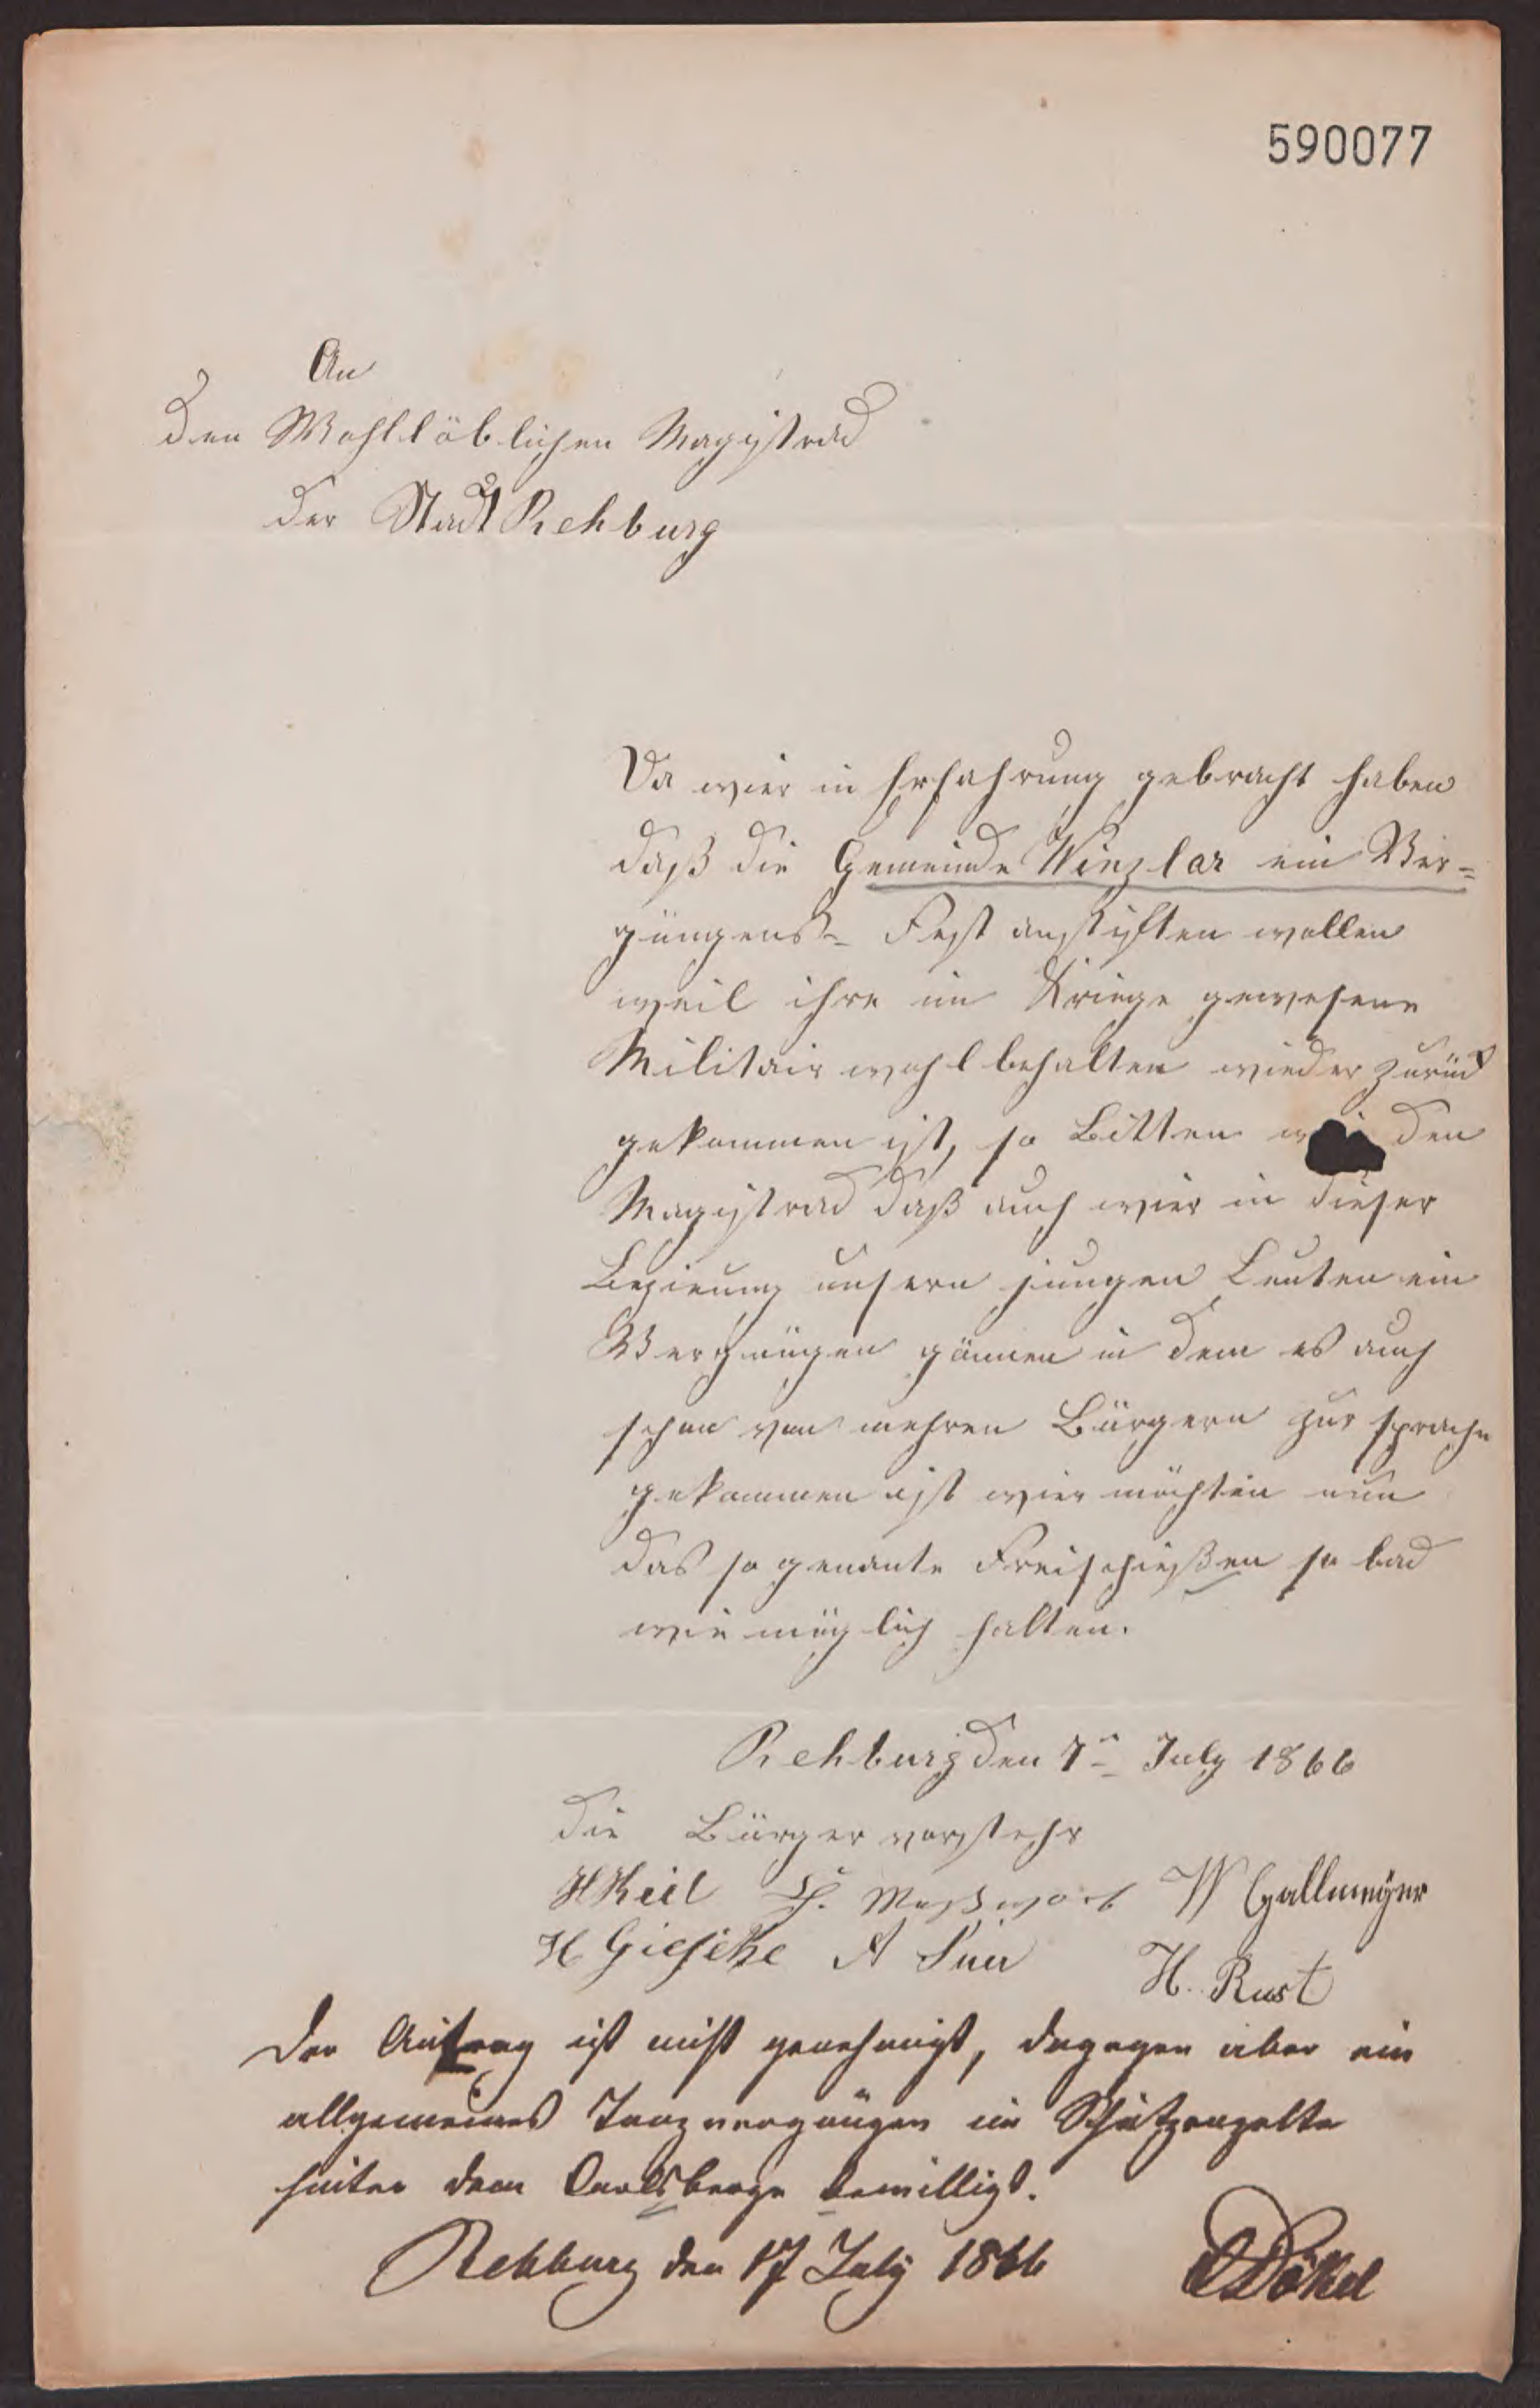 590077
An
den Wohllöblichen Magistrad
der Stadt Rehburg
Da wier in Erfahrung gebracht haben
daß die Gemeinde Winzlar ein Ver=
güngens- Fest anstiften wollen
weil ihre im Kriege gewesene
Militair wohl behalten wieder zurück
gekommen ist, so Bitten den
Magistrad daß auch wier in dieser
Bezieung unsern jungen Leuten ein
Vergnügen gönnen in dem es auch
schon von mehren Bürgern zur sprache
gekommen ist wier möchten nun
das so genante Freischießen so bad
wie möglich halten.
Rehburg den 7n July 1866
Die Bürger vorstehr
HKeil W Gallmeÿer
H Gieseke A H. Rust
Der Antrag ist nicht genehmigt, dagegen aber ein
allgemeines Tanzvergnügen im Schützenzelte
hinter dem Carlsberge bewilligt.
Rehburg den 17 July 1866